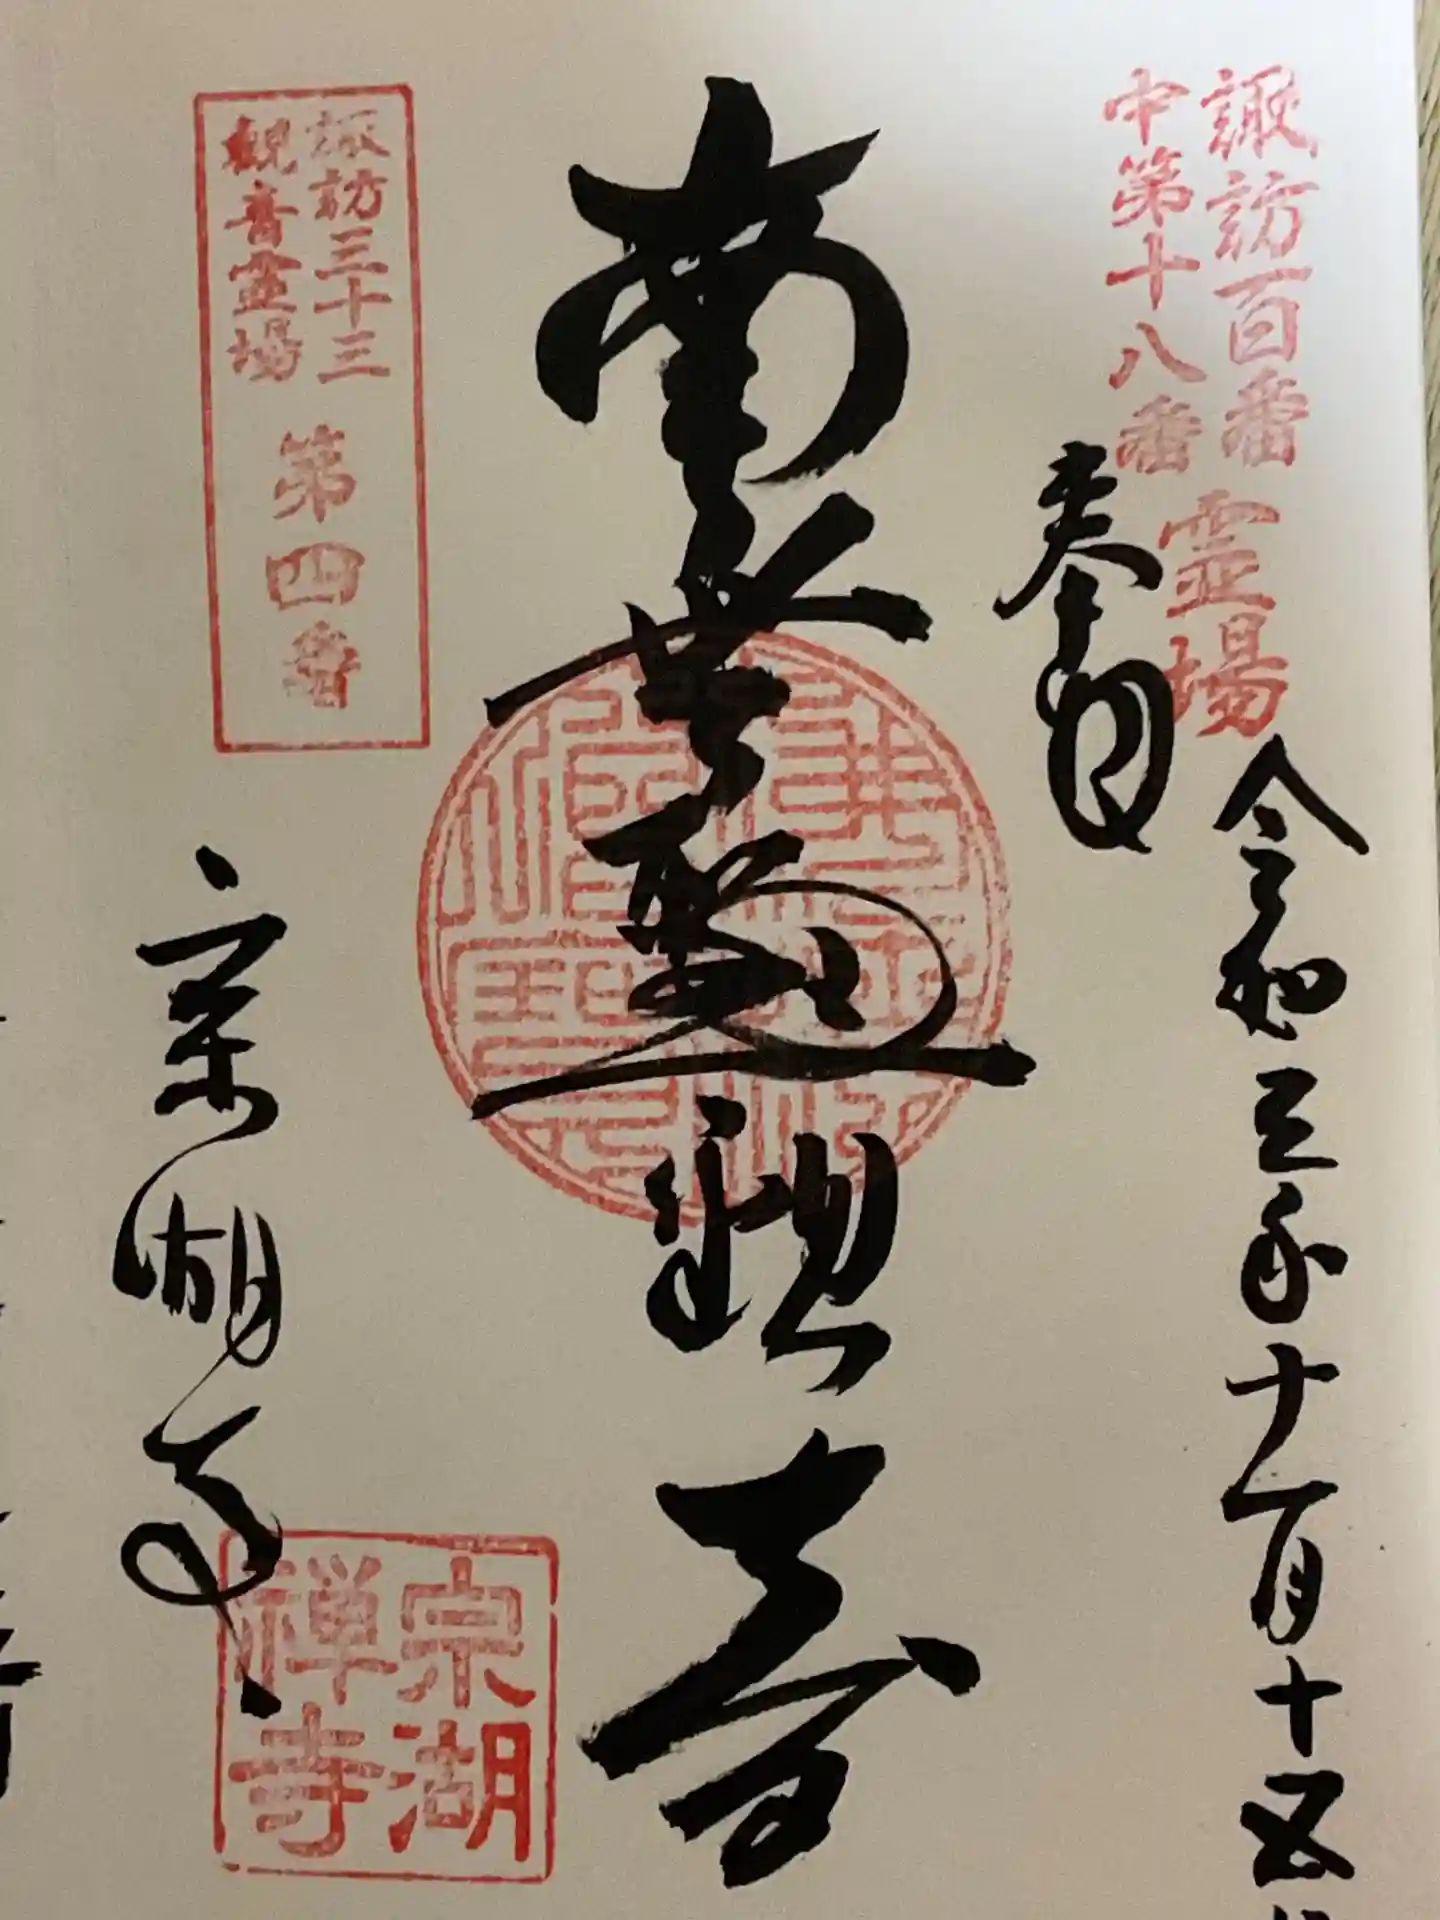 諏訪百番
中第十八番
霊場
奉拝
令和三年十一月十五
南無聖観音
諏訪三十三
観音霊場
第四番
宗湖寺
宗湖
禅寺